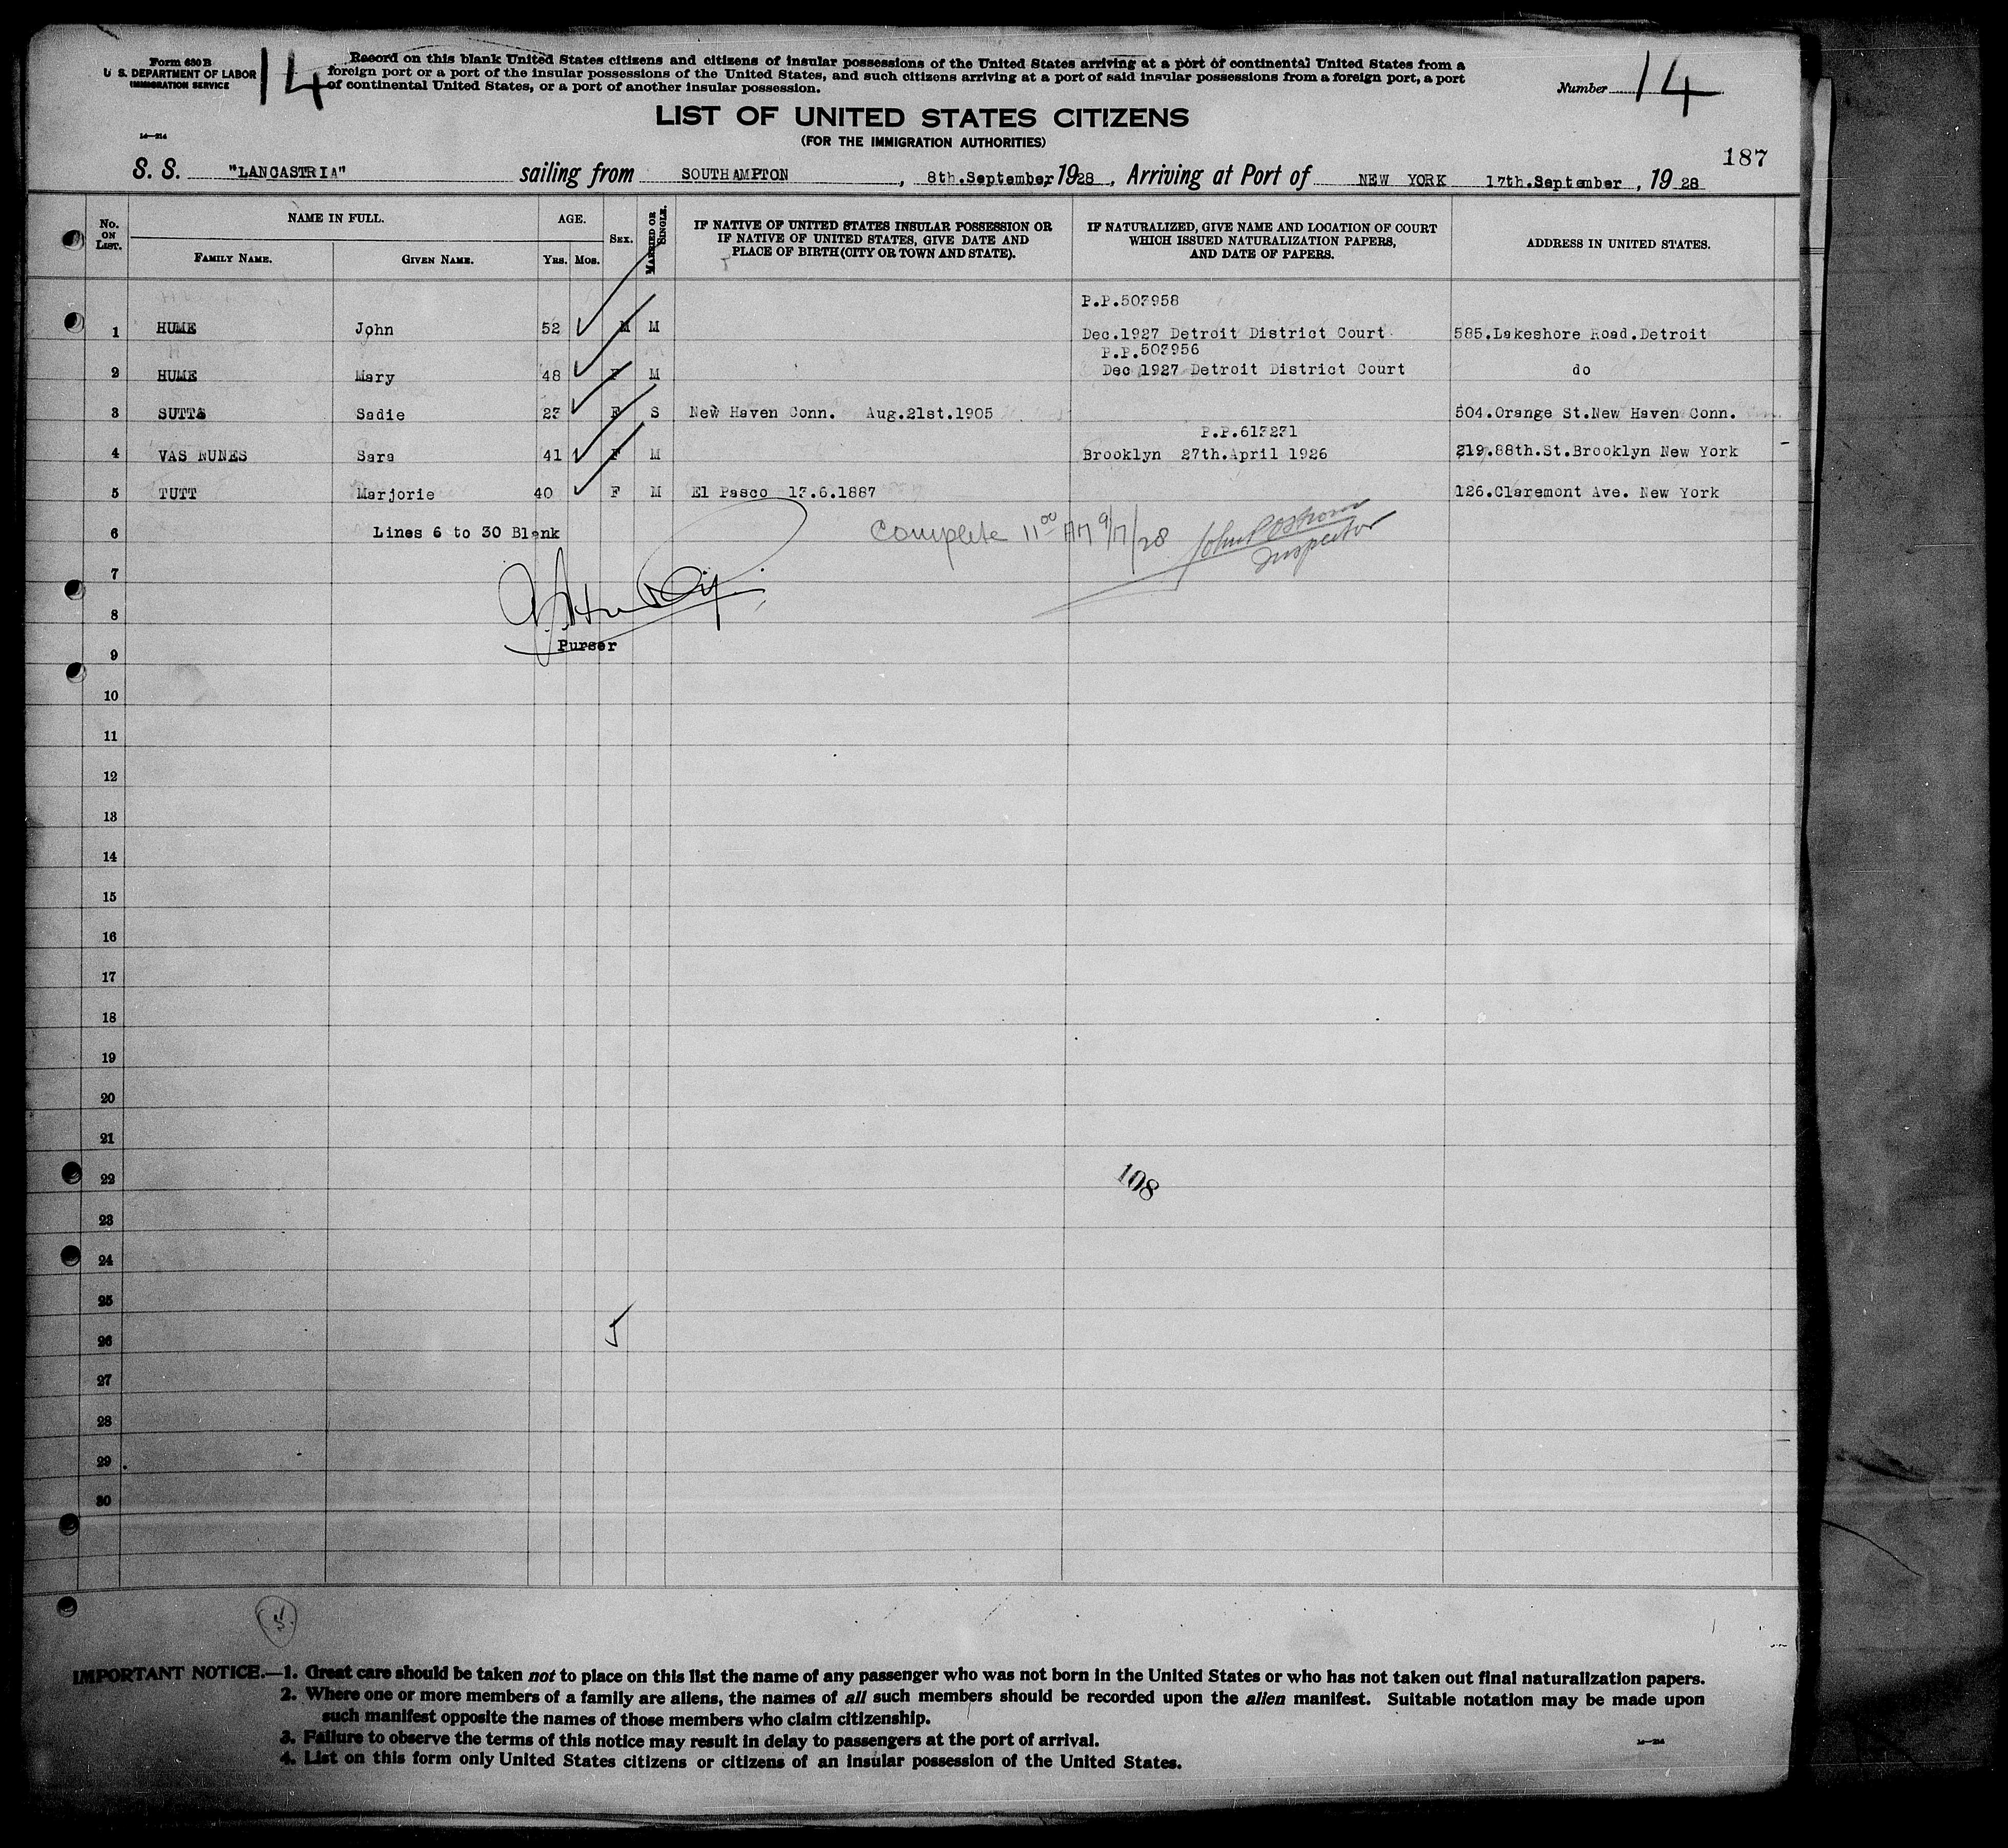 Form 630 B
U. S. DEPARTMENT OF LABOR
IMMIGRATION SERVICE
14
Record on this blank United States citizens and citizens of insular possessions of the United States arriving at a port of continental United States from a
foreign port or a port of the insular possessions of the United States, and such citizens arriving at a port of said insular possessions from a foreign port, a port
of continental United States, or a port of another insular possession.
Number 14
LIST OF UNITED STATES CITIZENS
(FOR THE IMMIGRATION AUTHORITIES)
14—214
187
S. S. "LANCASTRIA" sailing from SOUTHAMPTON, 8th.September, 1928, Arriving at Port of NEW YORK 17th.September, 19 28
No. ON LIST.
NAME IN FULL.
FAMILY NAME. GIVEN NAME.
AGE.
YRS. MOS.
SEX.
MARRIED OR SINGLE.
IF NATIVE OF UNITED STATES INSULAR POSSESSION OR
IF NATIVE OF UNITED STATES, GIVE DATE AND
PLACE OF BIRTH (CITY OR TOWN AND STATE).
IF NATURALIZED, GIVE NAME AND LOCATION OF COURT
WHICH ISSUED NATURALIZATION PAPERS,
AND DATE OF PAPERS.
ADDRESS IN UNITED STATES.
P.P.503958
1 HUME John 52 M M Dec.1927 Detroit District Court 585.Lakeshore Road.Detroit
P.P.503956
2 HUME Mary 48 F M Dec 1927 Detroit District Court do
3 SUTTA Sadie 23 F S New Haven Conn. Aug.21st.1905 504.Orange St.New Haven Conn.
P.P.613231
4 VAS NUNES Sara 41 F M Brooklyn 27th.April 1926 219.88th.St.Brooklyn New York
5 TUTT Marjorie 40 F M El Pasco 13.6.1887 126.Claremont Ave. New York
6 Lines 6 to 30 Blank Complete 11 00 AM 9/17/28 John P
Inspector
7
8
Purser
9
10
11
12
13
14
15
16
17
18
19
20
21
22
108
23
24
25
5
26
27
28
29
30
5
IMPORTANT NOTICE.—1. Great care should be taken not to place on this list the name of any passenger who was not born in the United States or who has not taken out final naturalization papers.
2. Where one or more members of a family are aliens, the names of all such members should be recorded upon the alien manifest. Suitable notation may be made upon
such manifest opposite the names of those members who claim citizenship.
3. Failure to observe the terms of this notice may result in delay to passengers at the port of arrival.
4. List on this form only United States citizens or citizens of an insular possession of the United States.
14—214